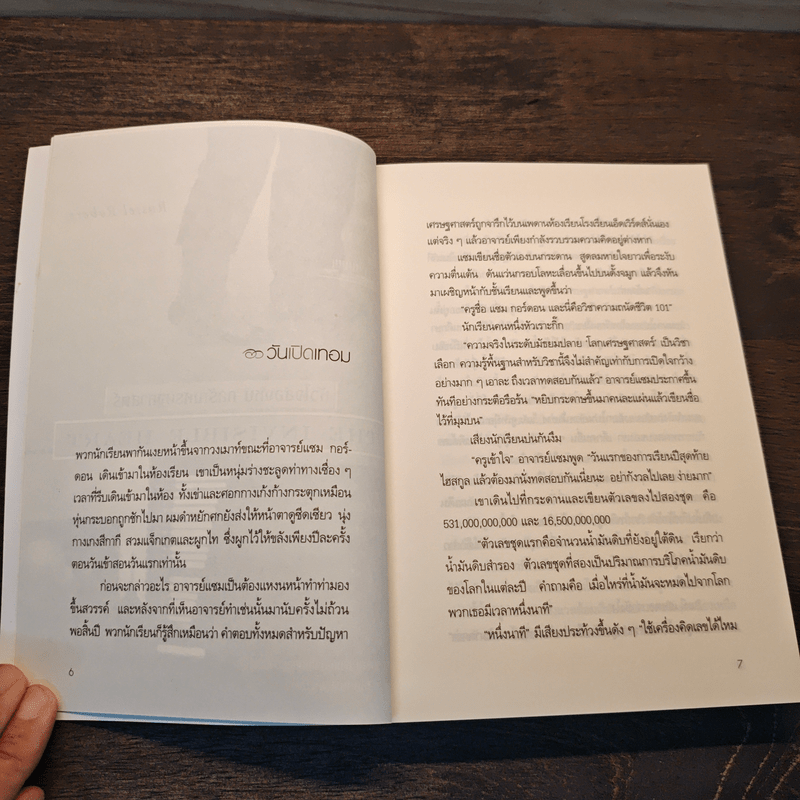 วันเปิดเทอม
พวกนักเรียนพากันเงยหน้าขึ้นจากวงเมาท์ขณะที่อาจารย์แซม กอร์-
ดอน เดินเข้ามาในห้องเรียน เขาเป็นหนุ่มร่างชะลูดท่าทางเชื่อง ๆ
เวลาที่รีบเดินเข้ามาในห้อง ทั้งเข่าและศอกกางเก้งก้างกระตุกเหมือน
หุ่นกระบอกถูกชักไปมา ผมดำหยักศกยังส่งให้หน้าตาดูซีดเซียว นุ่ง
กางเกงสีกากี สวมแจ็กเกตและผูกไท ซึ่งผูกไว้ให้ขลังเพียงปีละครั้ง
ตอนวันเข้าสอนวันแรกเท่านั้น
ก่อนจะกล่าวอะไร อาจารย์แซมเป็นต้องแหงนหน้าทำท่ามอง
ขึ้นสวรรค์ และหลังจากที่เห็นอาจารย์ทำเช่นนั้นมานับครั้งไม่ถ้วน
พอสิ้นปี พวกนักเรียนก็รู้สึกเหมือนว่า คำตอบทั้งหมดสำหรับปัญหา
6
เศรษฐศาสตร์ถูกจารึกไว้บนเพดานห้องเรียนโรงเรียนเอ็ดเวิร์ดส์นั่นเอง
แต่จริง ๆ แล้วอาจารย์เพียงกำลังรวบรวมความคิดอยู่ต่างหาก
แซมเขียนชื่อตัวเองบนกระดาน สูดลมหายใจยาวเพื่อระงับ
ความตื่นเต้น ดันแว่นกรอบโลหะเลื่อนขึ้นไปบนดั้งจมูก แล้วจึงหัน
มาเผชิญหน้ากับชั้นเรียนและพูดขึ้นว่า
"ครูชื่อ แซม กอร์ดอน และนี่คือวิชาความถนัดชีวิต 101"
นักเรียนคนหนึ่งหัวเราะกิ๊ก
"ความจริงในระดับมัธยมปลาย 'โลกเศรษฐศาสตร์' เป็นวิชา
เลือก ความรู้พื้นฐานสำหรับวิชานี้จึงไม่สำคัญเท่ากับการเปิดใจกว้าง
อย่างมาก ๆ เอาละ ถึงเวลาทดสอบกันแล้ว" อาจารย์แซมประกาศขึ้น
ทันทีอย่างกระตือรือร้น "หยิบกระดาษขึ้นมาคนละแผ่นแล้วเขียนชื่อ
ไว้ที่มุมบน"
เสียงนักเรียนบ่นกันงึม
"ครูเข้าใจ" อาจารย์แซมพูด "วันแรกของการเรียนปีสุดท้าย
ไฮสกูล แล้วต้องมานั่งทดสอบกันเนี่ยนะ อย่ากังวลไปเลย ง่ายมาก"
เขาเดินไปที่กระดานและเขียนตัวเลขลงไปสองชุด คือ
531,000,000,000 และ 16,500,000,000
"ตัวเลขชุดแรกคือจำนวนน้ำมันดิบที่ยังอยู่ใต้ดิน เรียกว่า
น้ำมันดิบสำรอง ตัวเลขชุดที่สองเป็นปริมาณการบริโภคน้ำมันดิบ
ของโลกในแต่ละปี คำถามคือ เมื่อไหร่ที่น้ำมันจะหมดไปจากโลก
พวกเธอมีเวลาหนึ่งนาที"
"หนึ่งนาที" มีเสียงประท้วงขึ้นดัง ๆ "ใช้เครื่องคิดเลขได้ไหม
7